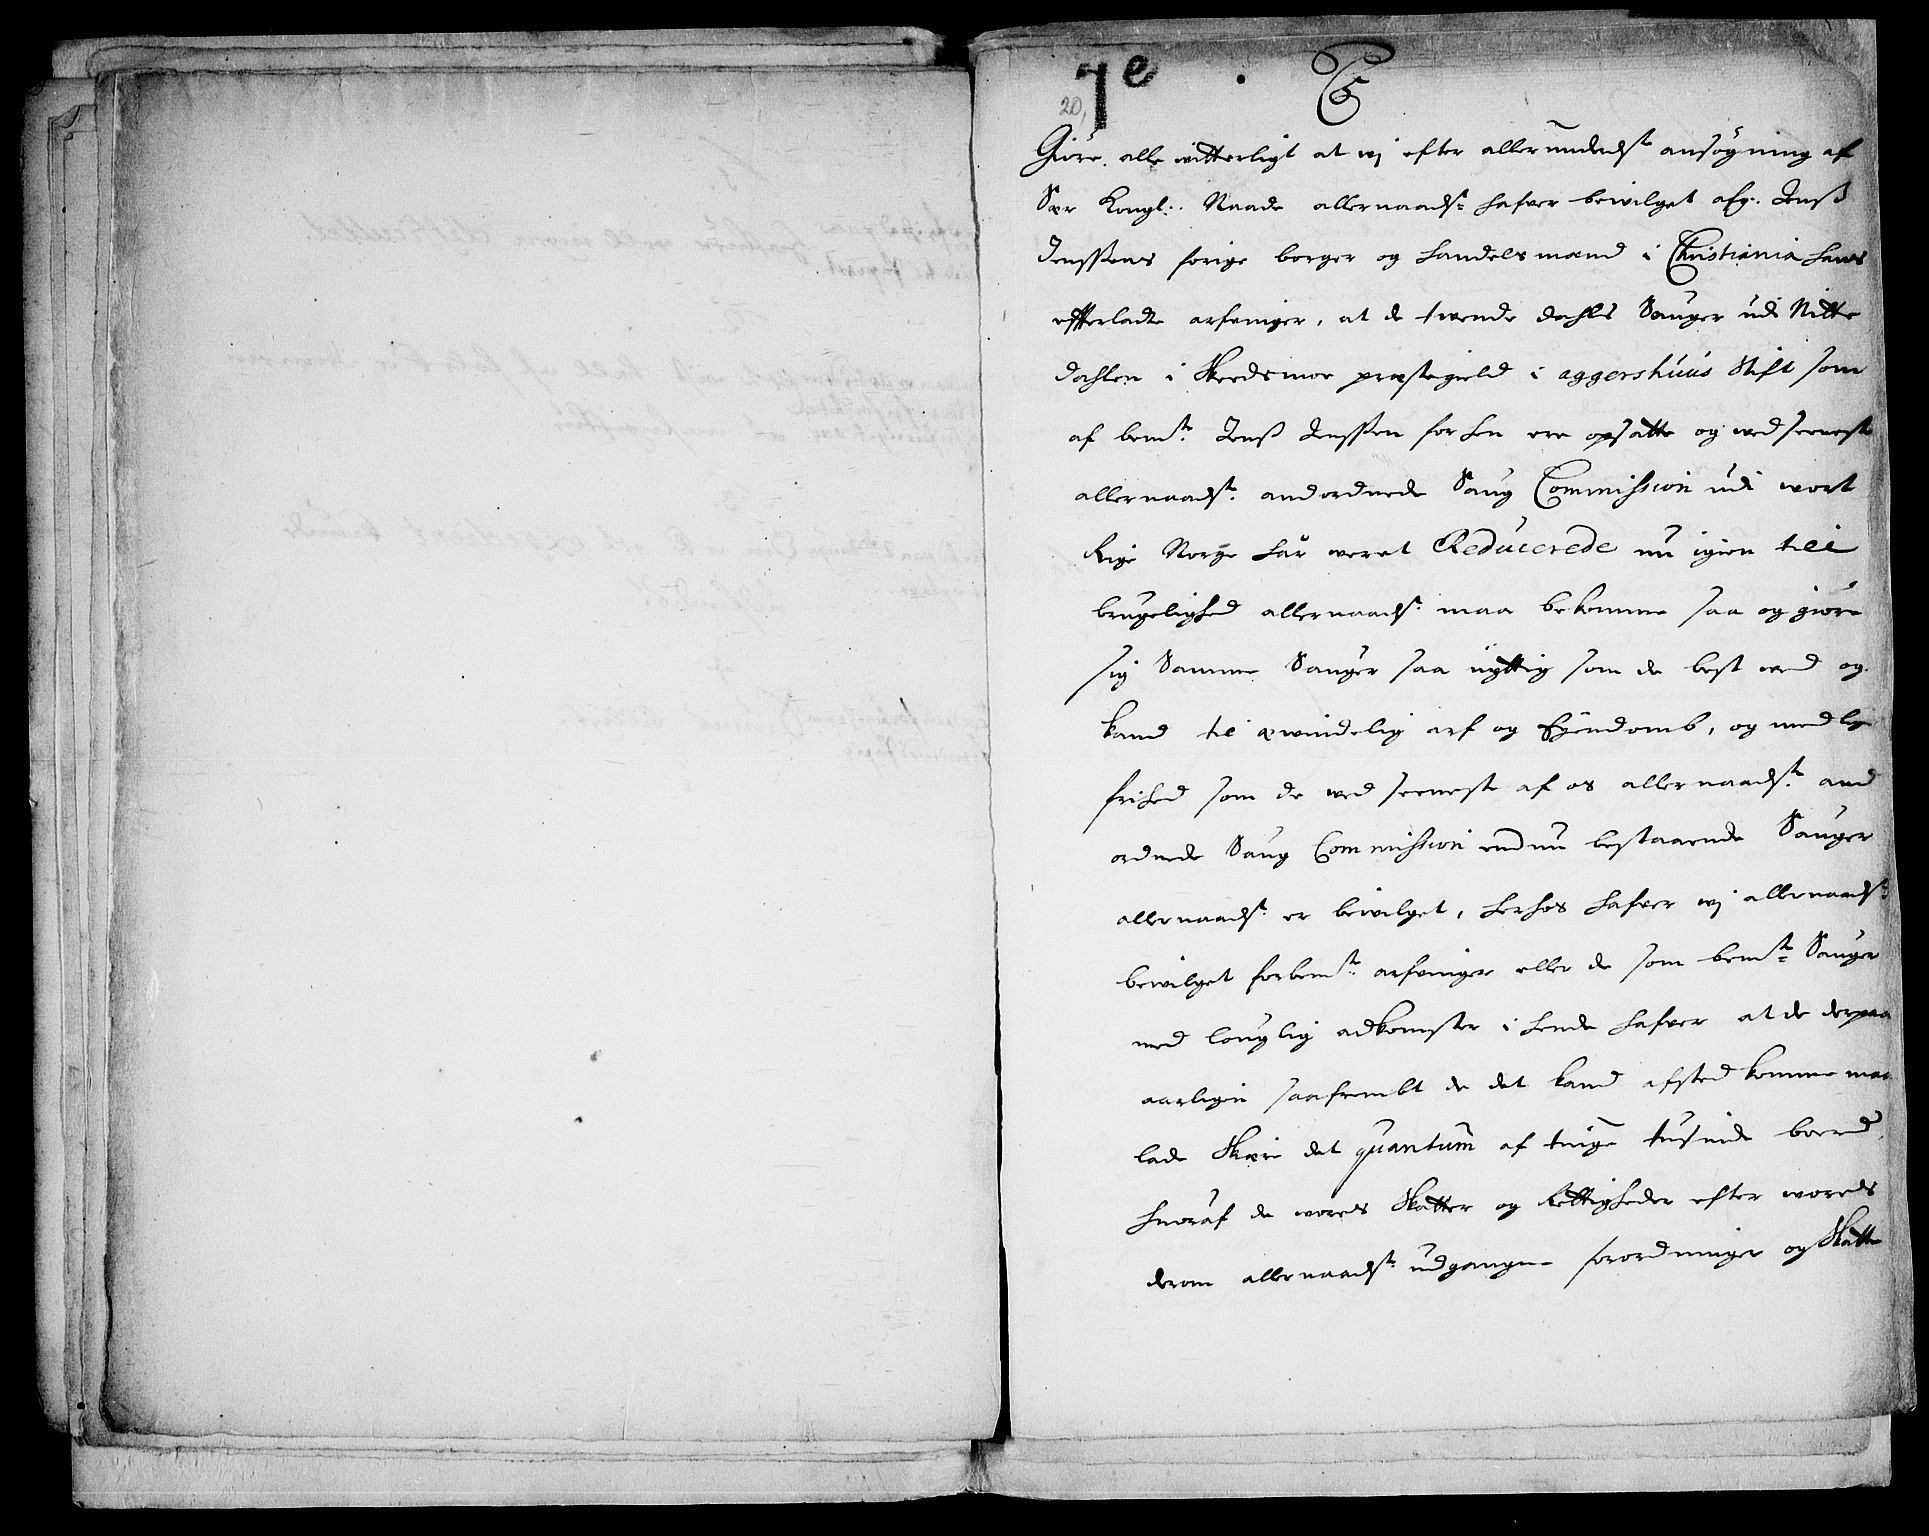 7e
20,
C5
Giøre alle witterligt at wj efter allerunddst ansøgning af
Vor Kongl: Naade allernaadst hafver bewilget afg: Jenß
Jenssens forige borger og handelsmand i Christiania hans
efterladte arfvinger, at de twende dahls Sauger udi Nitte
dahlen i Skeedsmoe præstegield i aggershuus Stift som
af bemte Jenß Jenssen forhen ere opsatte og wed seeneste
allernaadst andordnede Saug Commission udi wort
Rige Norge har weret Reducerede nu igien till
brugelighed allernaadst maa bekomme saa og giøre
sig Samme Sauger saa nyttig som de best wed og
kand til æwindelig arf og Eyendomb, og med lige
frihed som de wed seeneste af os allernaadst and
ordnede Saug Commission endnu bestaaende Sauger
allernaadst er bewilget, herhos hafver wj allernaadst
bewilget forbemte arfvinger eller de som bemte Sauger
med louglig adkomster i hende hafver at de derpaa
aarligen saafrembt de det kand afsted komme maa
lade Skære det quantum af tiuge tusinde boerd,
hvoraf de woris Skatter og Rettigheder efter woris
derom allernaadst udgangne forordninger og Skatte